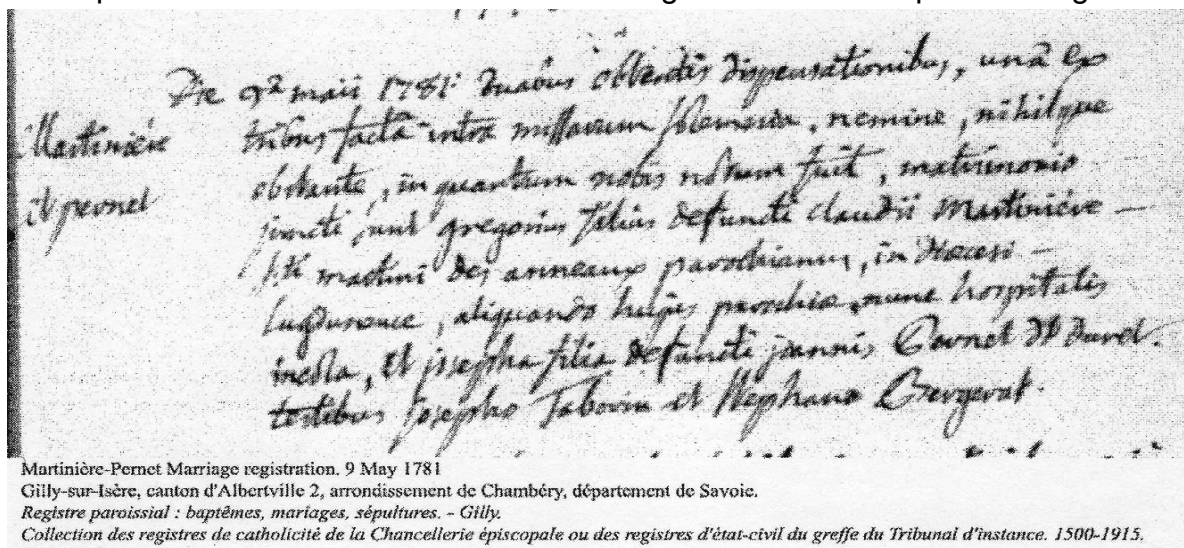 Die 9ª maii 1781. duabus obtentis dispensationibus, unâ ex
Martinière
tribus factâ intra missarum solemnia, nemine, nihilque
obstante, in quantum nobis notum fuit, matrimonio
et pernet
juncti sunt gregorius filius defuncti claudii Martinière —
s.ti martini des anneaux parochianus, in Diœcesi —
Lugdunence, aliquando hujus parochiæ, nunc hospitalis
incola, et josepha filia defuncti joannis Pernet dt
testibus josepho Taborin et Stephano Bergerat.
Martinière-Pernet Marriage registration. 9 May 1781
Gilly-sur-Isère, canton d'Albertville 2, arrondissement de Chambéry, département de Savoie.
Registre paroissial : baptêmes, mariages, sépultures. - Gilly.
Collection des registres de catholicité de la Chancellerie épiscopale ou des registres d'état-civil du greffe du Tribunal d'instance. 1500-1915.